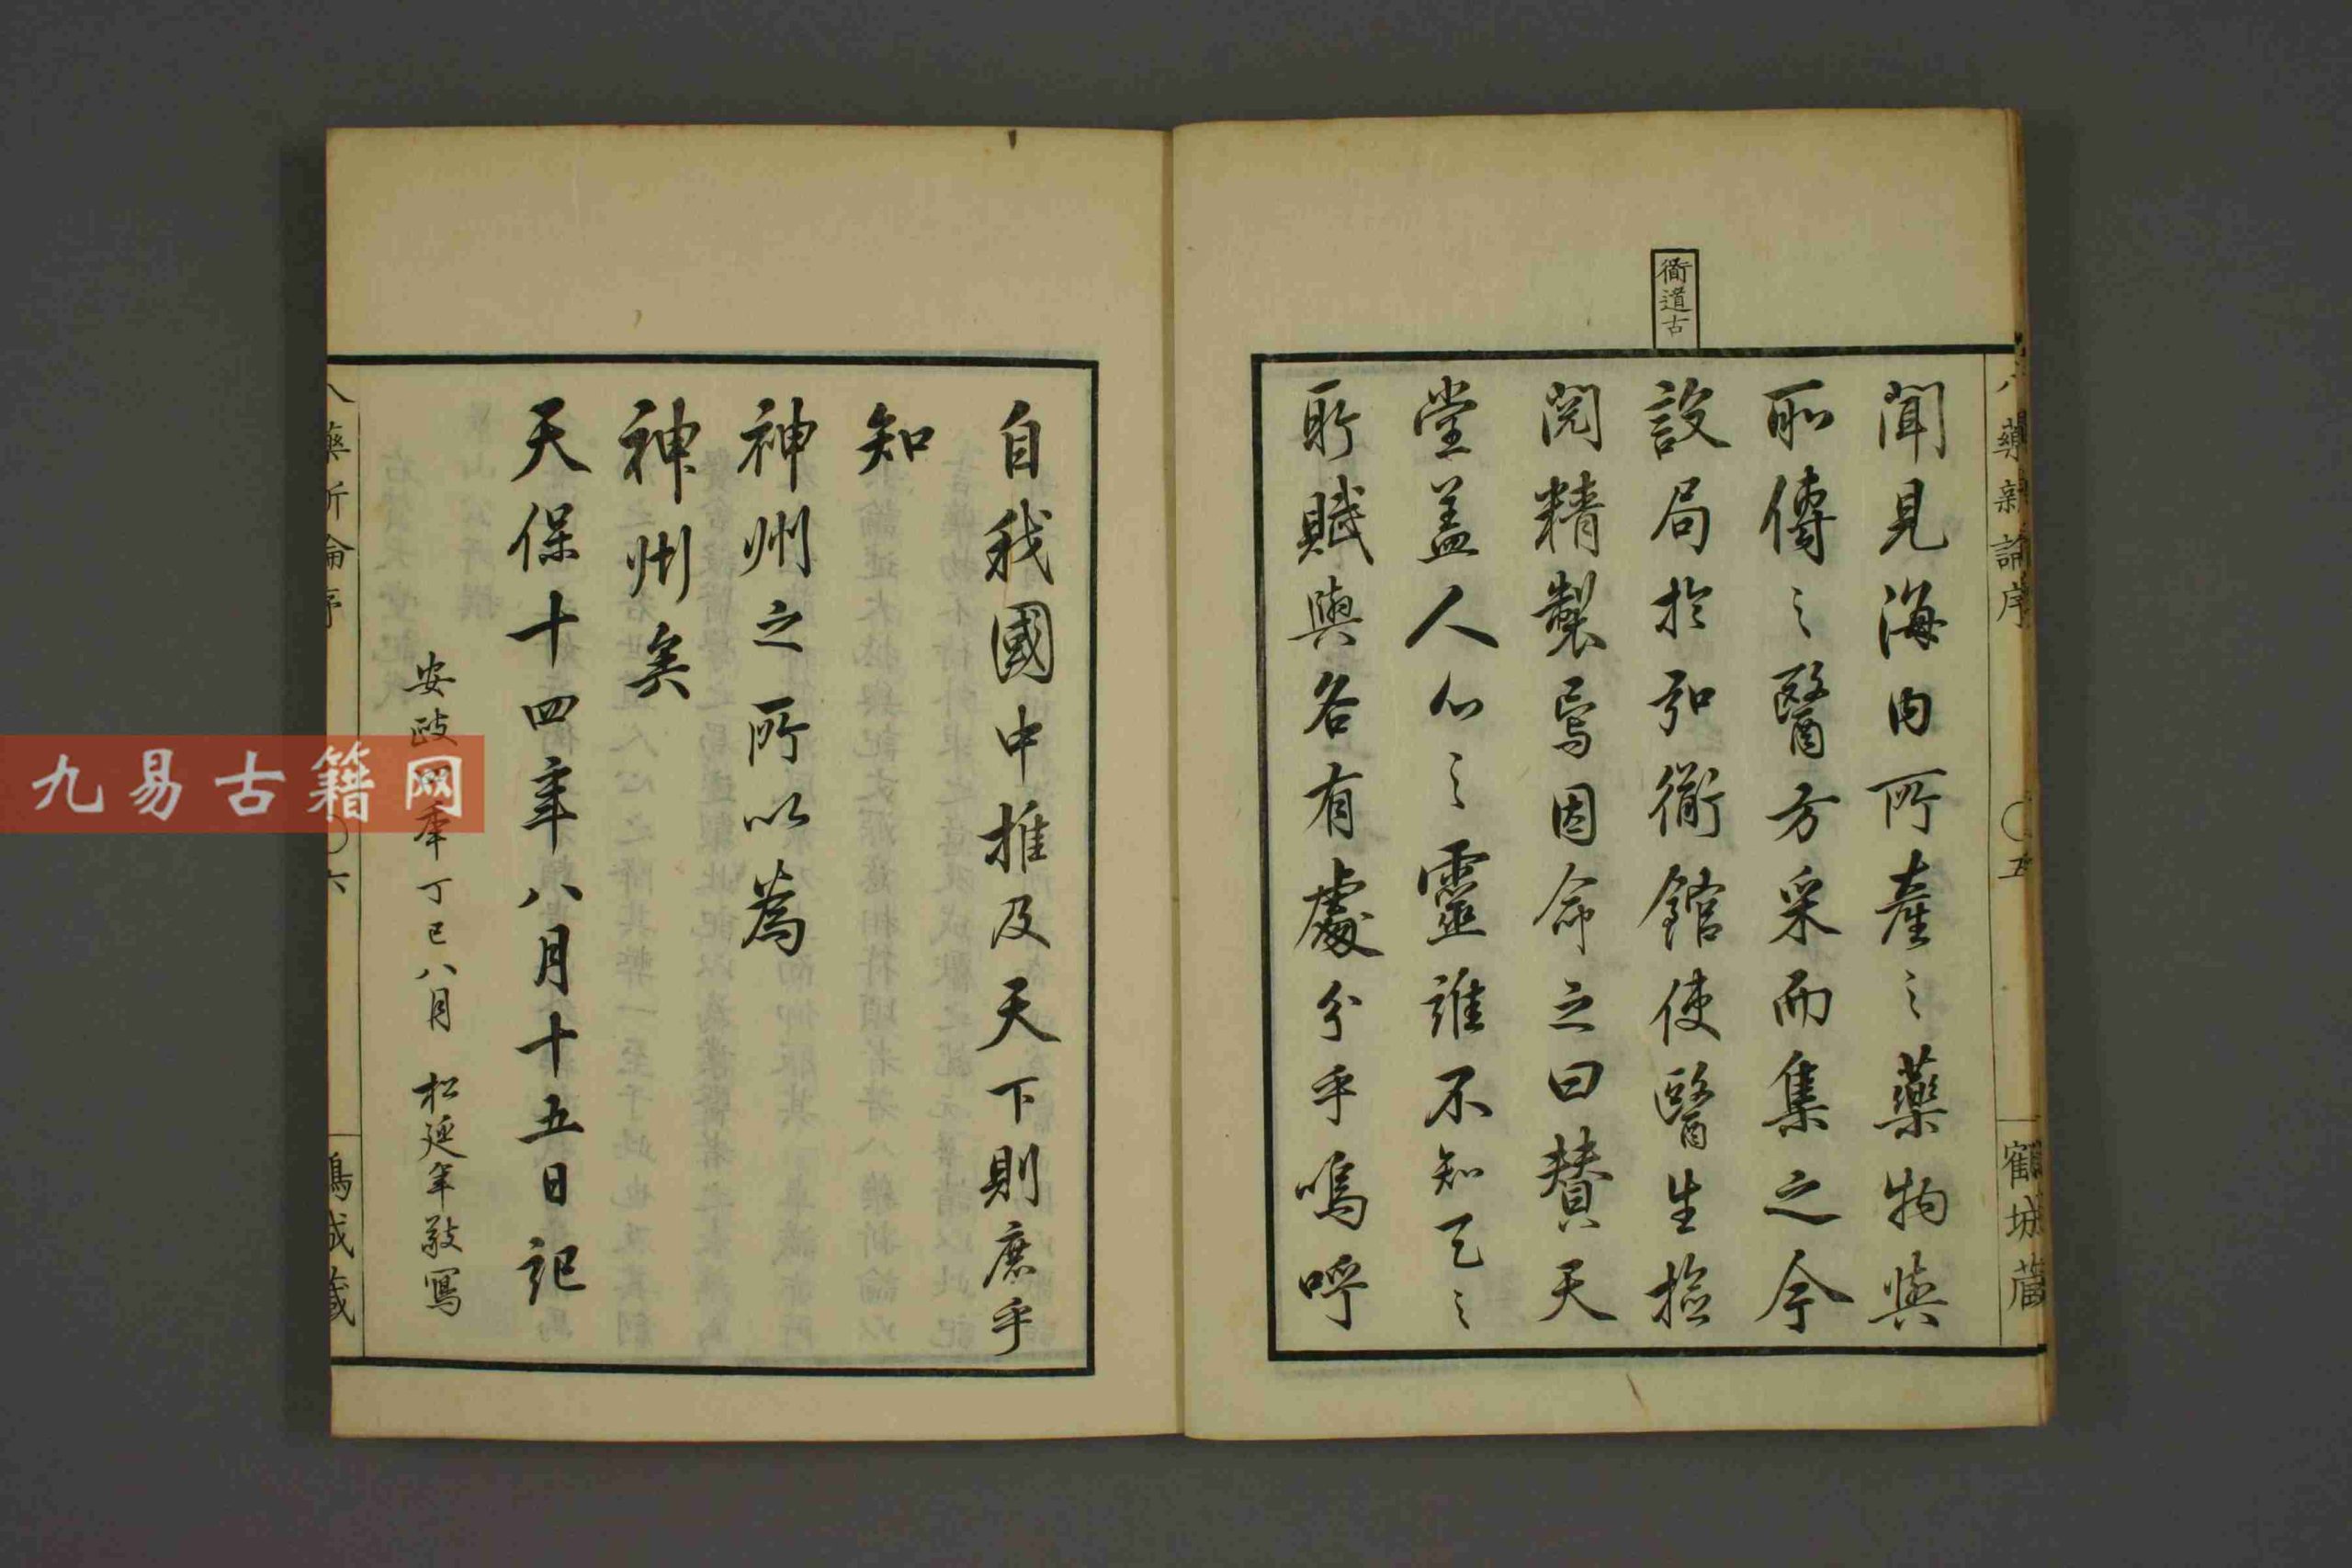 八藥新論序
〇五
鶴城藏
衟道古
聞見海内所產之藥物與
所傳之醫方采而集之今
設局於弘衟館使醫生撿
閱精製焉因命之曰賛天
堂盖人心之靈誰不知已之
所賦與各有處分乎嗚呼
自我國中推及天下則庶乎
知
神州之所以為
神州矣
天保十四年八月十五日記
安政四年丁巳八月 松延年敬寫
八藥新論序
〇六
鶴城藏
九易古籍网